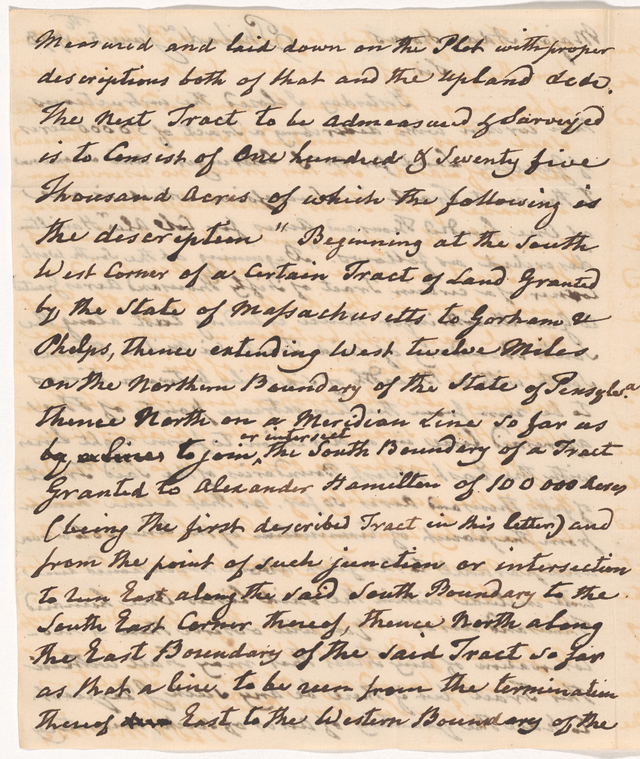 Measured and laid down on the Plot with proper
descriptions both of that and the upland &c&c.
The next Tract to be admeasured & Surveyed
is to Consist of One hundred & Seventy five
Thousand Acres of which the following is
the description " Beginning at the South
West Corner of a Certain Tract of Land Granted
by the State of Massachusetts to Gorham &
Phelps, thence extending West twelve Miles
on the Northern Boundary of the State of Pensylva.
thence North on a Meridian Line so far as
by a line to join or intersect the South Boundary of a Tract
Granted to Alexander Hamilton of 100 000 Acres
(being the first described Tract in this letter) and
from the point of such junction or intersection
to run East along the said South Boundary to the
South East Corner thereof, thence North along
the East Boundary of the said Tract so far
as that a line to be run from the termination
thereof East to the Western Boundary of the